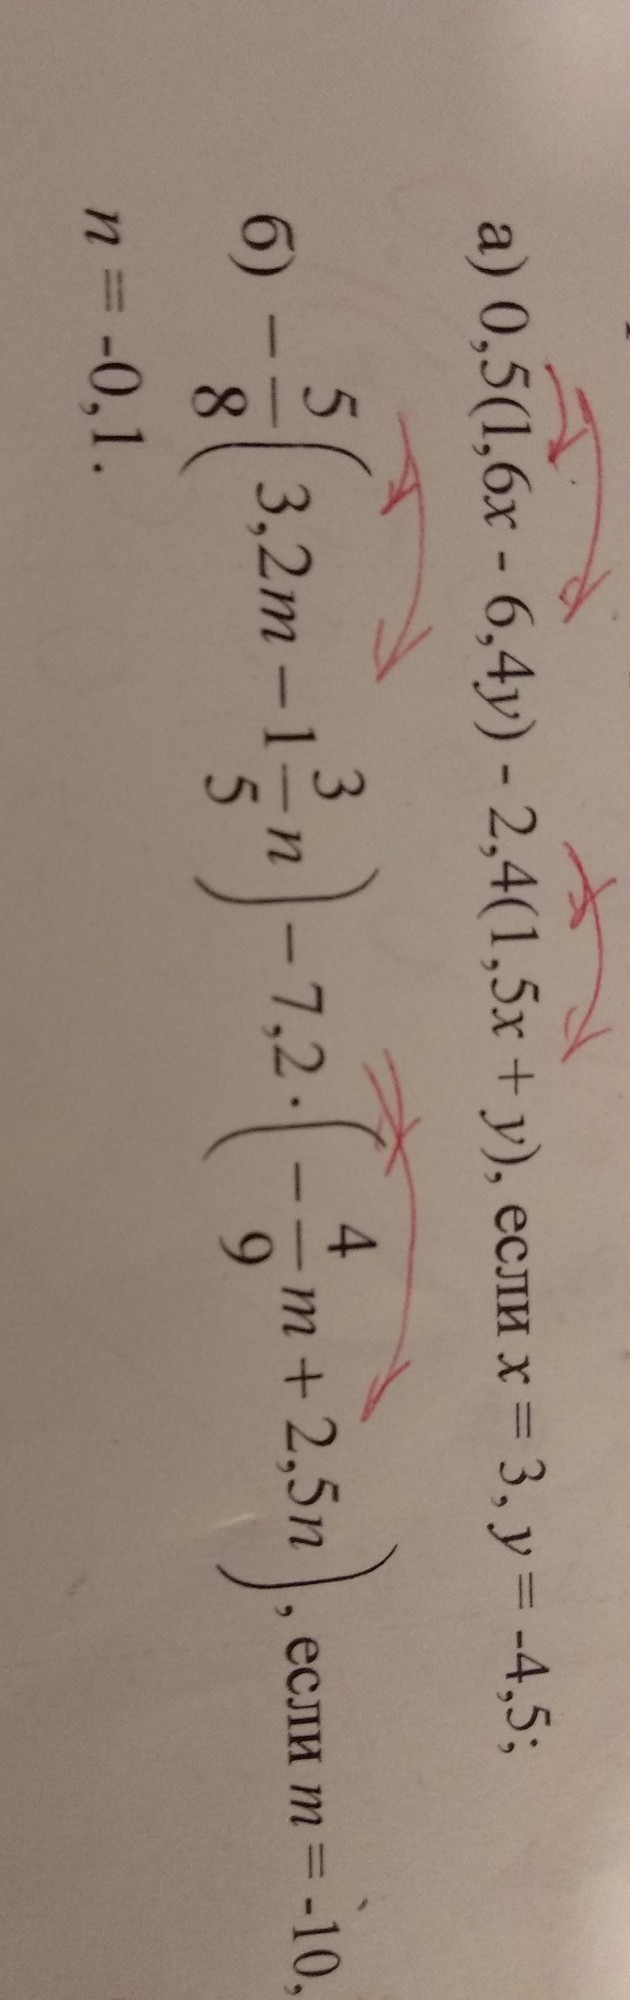 а) 0,5(1,6x - 6,4y) - 2,4(1,5x + y), если x = 3, y = -4,5;
б) −5/8(3,2m − 1 3/5 n) − 7,2 · (−4/9 m + 2,5n), если m = -10,
n = -0,1.